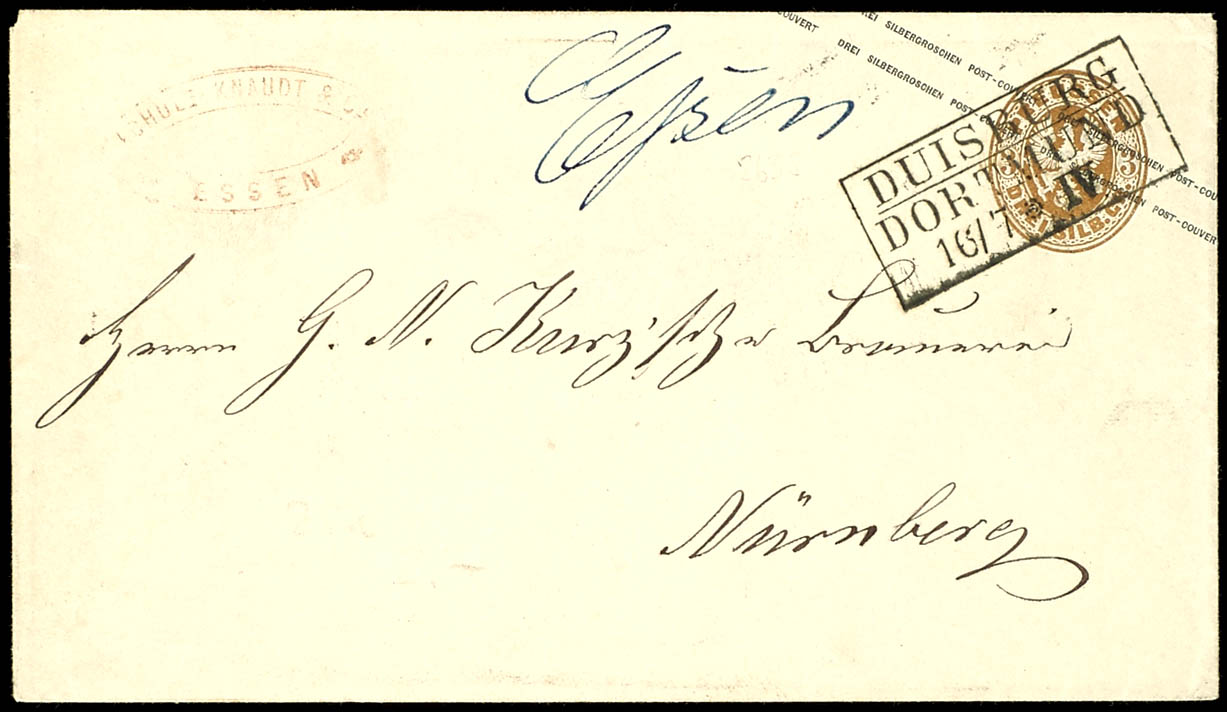 SCHULZ KNAUDT & Co.
ESSEN
Essen
COUVERT DREI SILBERGROSCHEN POST-COUVERT
DREI SILBERGROSCHEN POST-COUVERT
DREI SILBERGROSCHEN POST-COUVERT
DUISBURG
DORTMUND
16/7 * IV
3 3
DREI SILB. GR.
Herrn G. N. Kurz'sche Brauerei
Nürnberg